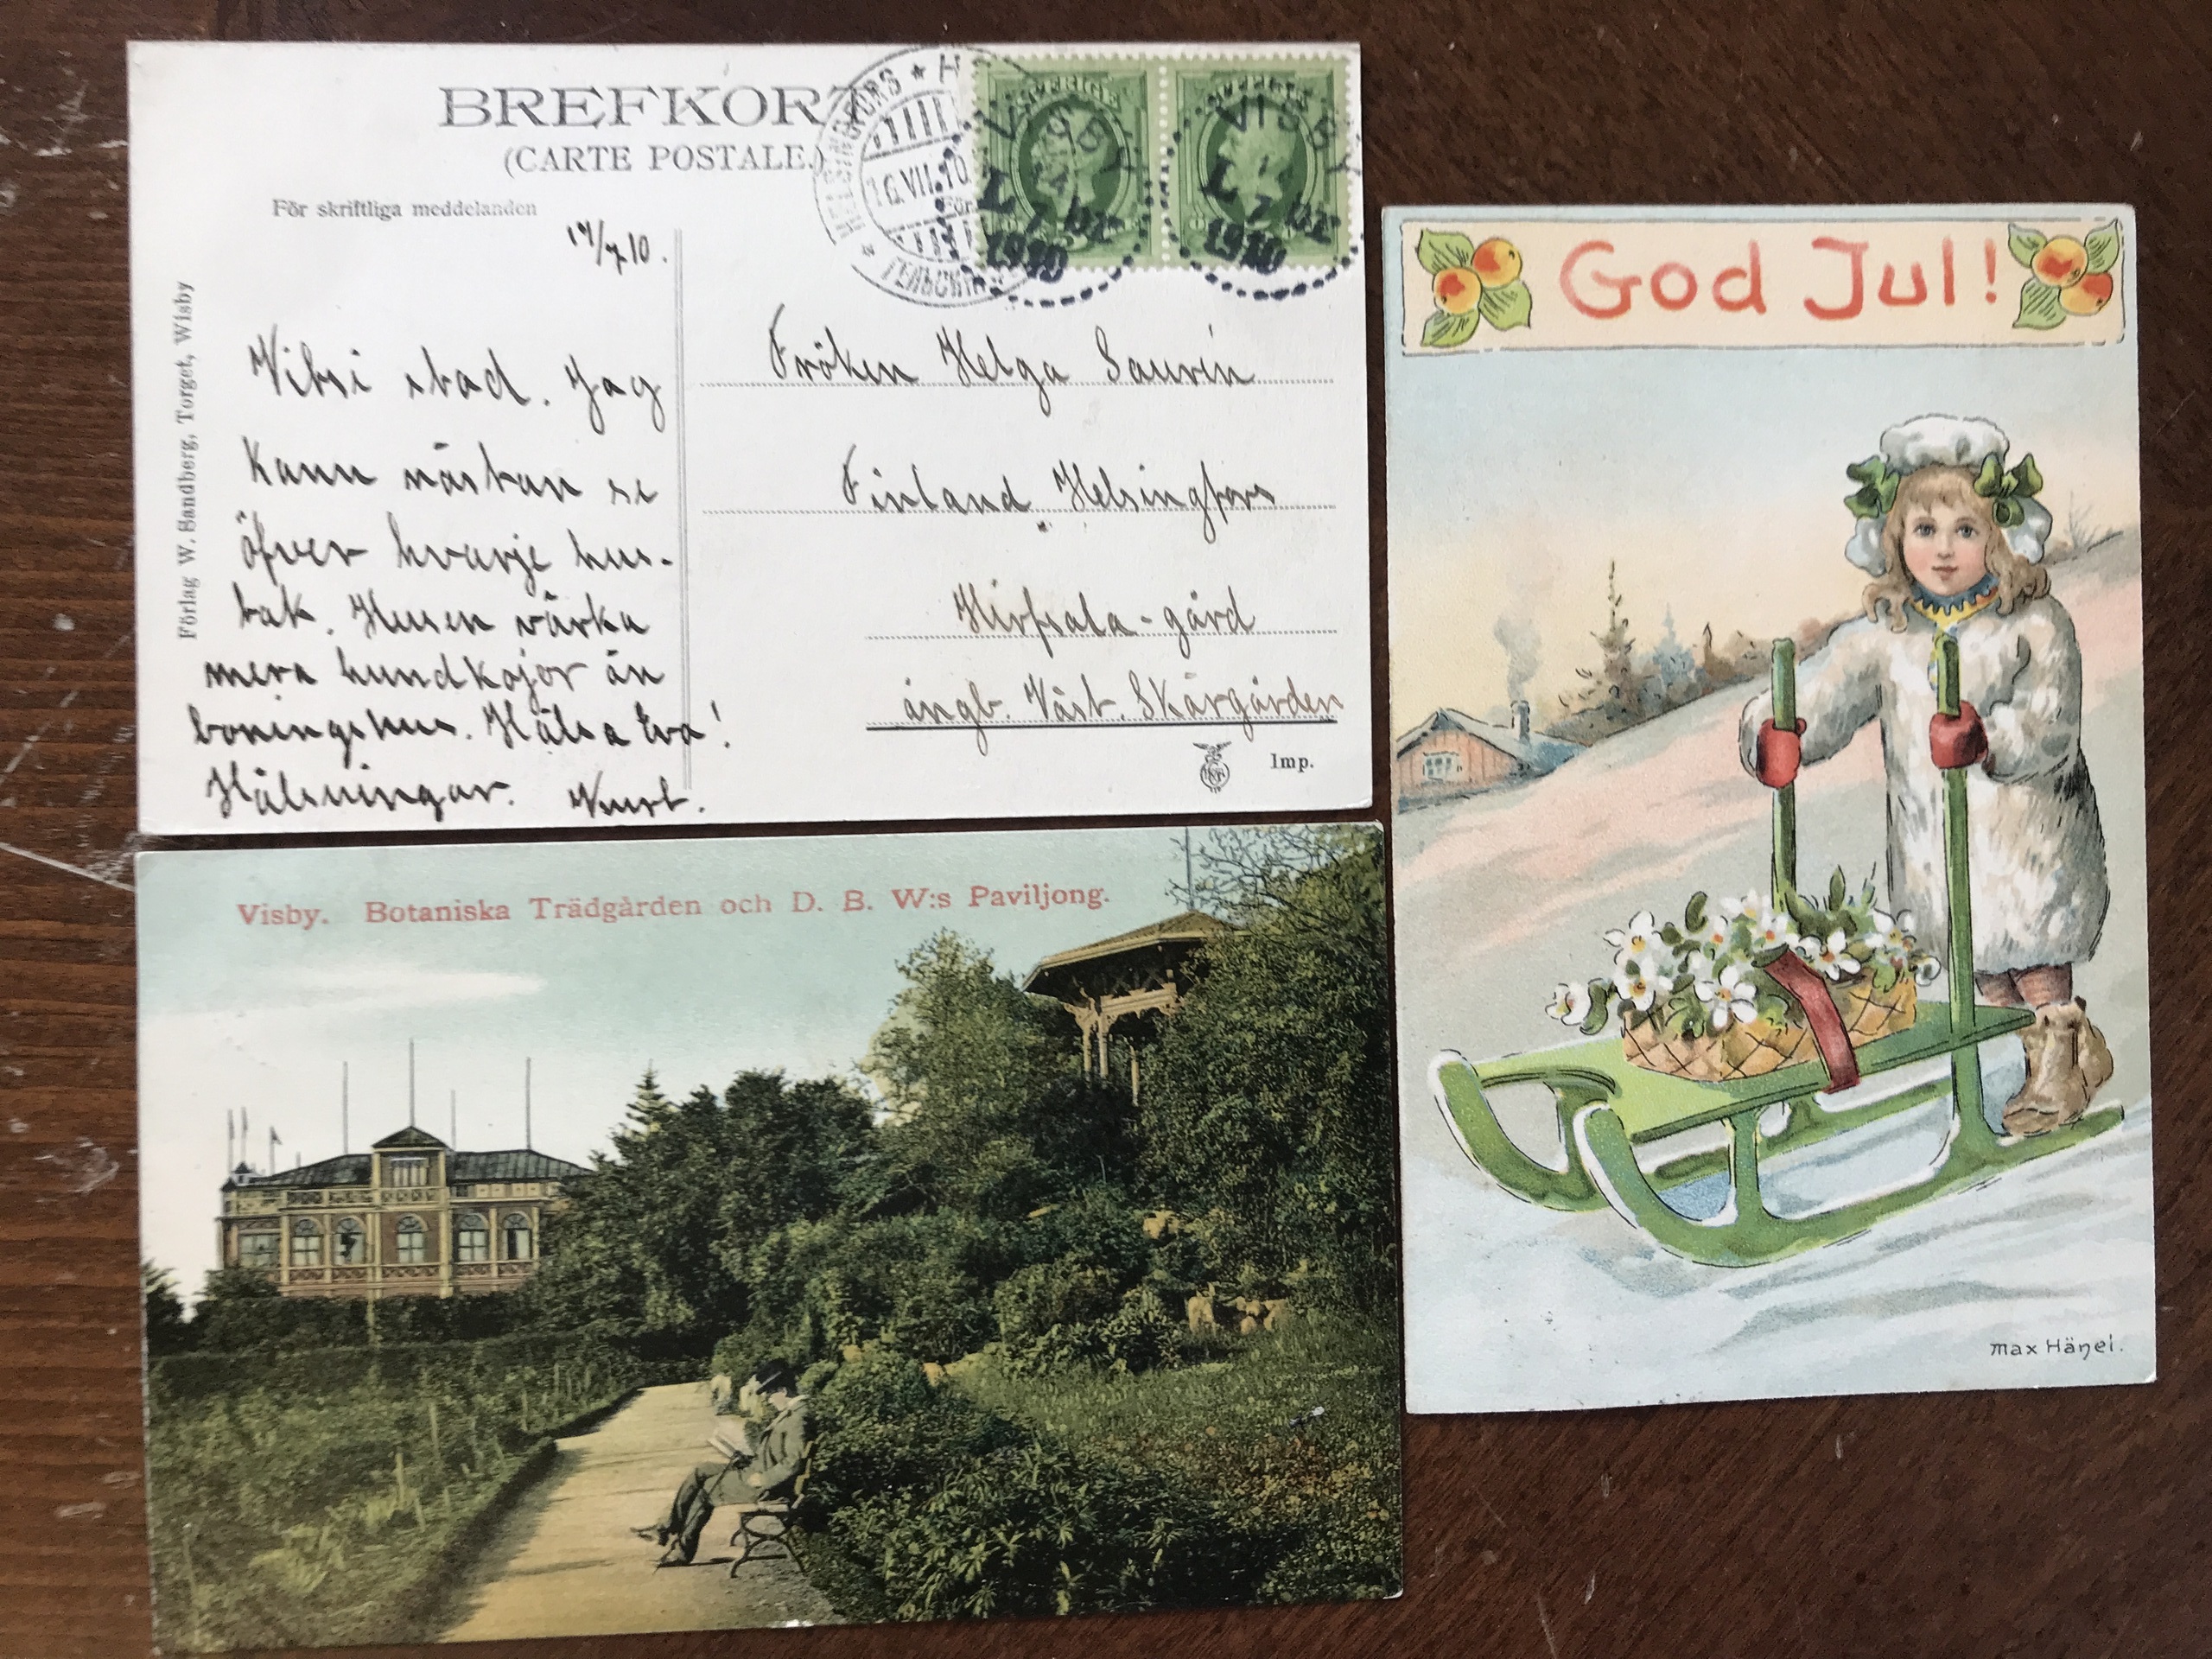 BREFKORT
(CARTE POSTALE.)
För skriftliga meddelanden
Förlag W. Sandberg, Torget, Wisby
HELSINGFORS
16.VII.10
SVERIGE
VISBY
1910
SVERIGE
VISBY
1910
14/7 10.
Vilsi stad. Jag
kann nästan se
öfver hvarje hus-
tak. Husen värka
mera hundkojor än
boningshus. Hälsa Eva!
Hälsningar. Kurt.
Fröken Helga Saurén
Finland Helsingfors
Hirfsala-gård
ångb. Väst. Skärgården
Imp.
God Jul!
Max Hänel.
Visby. Botaniska Trädgården och D. B. W:s Paviljong.